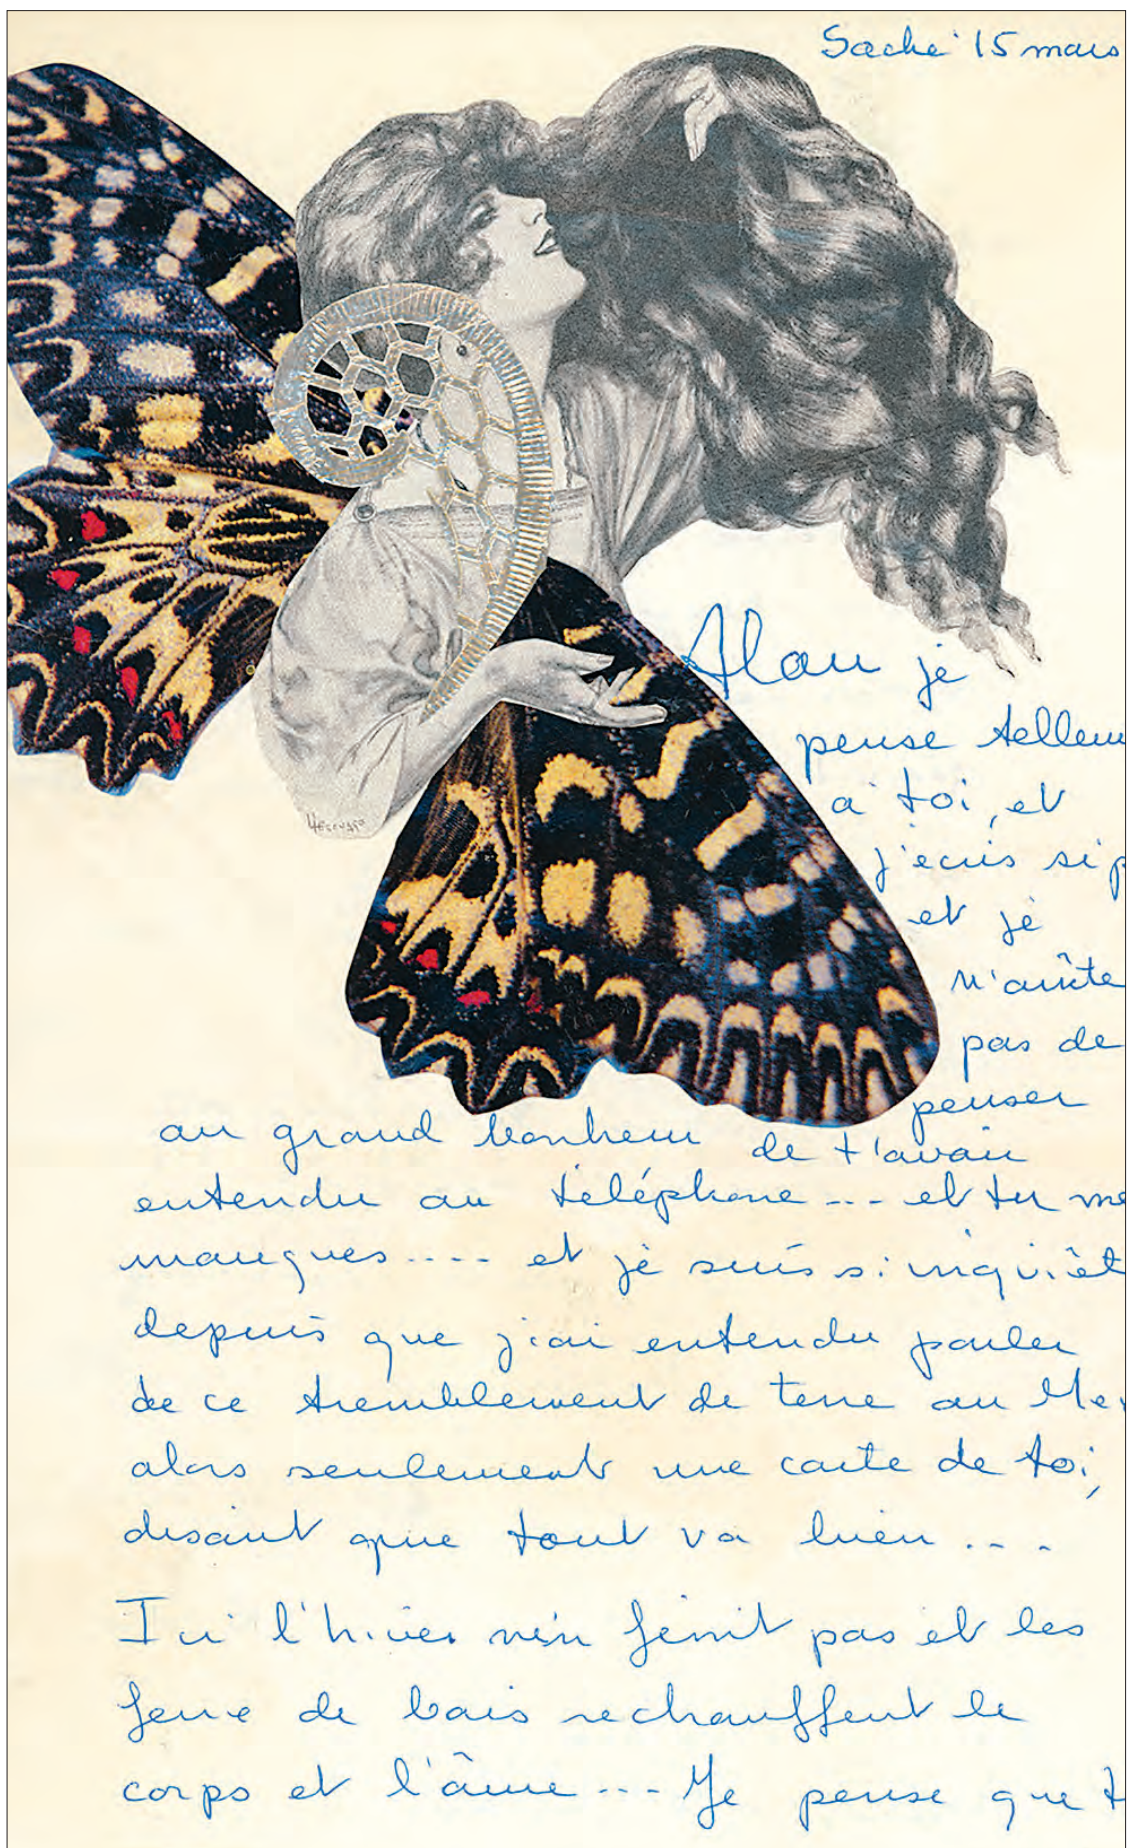 Saché 15 mars
Alan je
pense tellem
à toi, et
j'ecris si p
et je
n'arrête
pas de
penser
au grand bonheur de t'avoir
entendu au téléphone --- et tu me
manques .... et je suis si inquièt
depuis que j'ai entendu parler
de ce tremblement de terre au Me
alors seulement une carte de toi,
disant que tout va bien ...
Ici l'hiver n'en finit pas et les
feux de bois rechauffent le
corps et l'âme --- Je pense que t